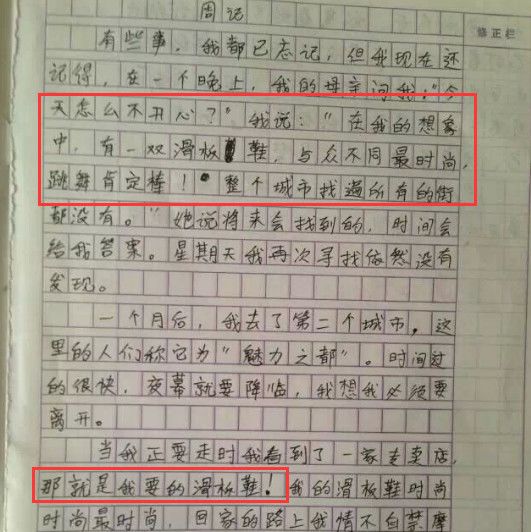 周记
修正栏
有些事,我都已忘记,但我现在还
记得,在一个晚上,我的母亲问我:“今
天怎么不开心?”我说:“在我的想象
中,有一双滑板鞋,与众不同最时尚,
跳舞肯定棒!”整个城市找遍所有的街
都没有。”她说将来会找到的,时间会
给我答案。星期天我再次寻找依然没有
发现。
一个月后,我去了第二个城市,这
里的人们称它为“魅力之都”。时间过
的很快,夜幕就要降临,我想我必须要
离开。
当我正要走时我看到了一家专卖店,
那就是我要的滑板鞋!我的滑板鞋时尚
时尚最时尚,回家的路上我情不自禁摩